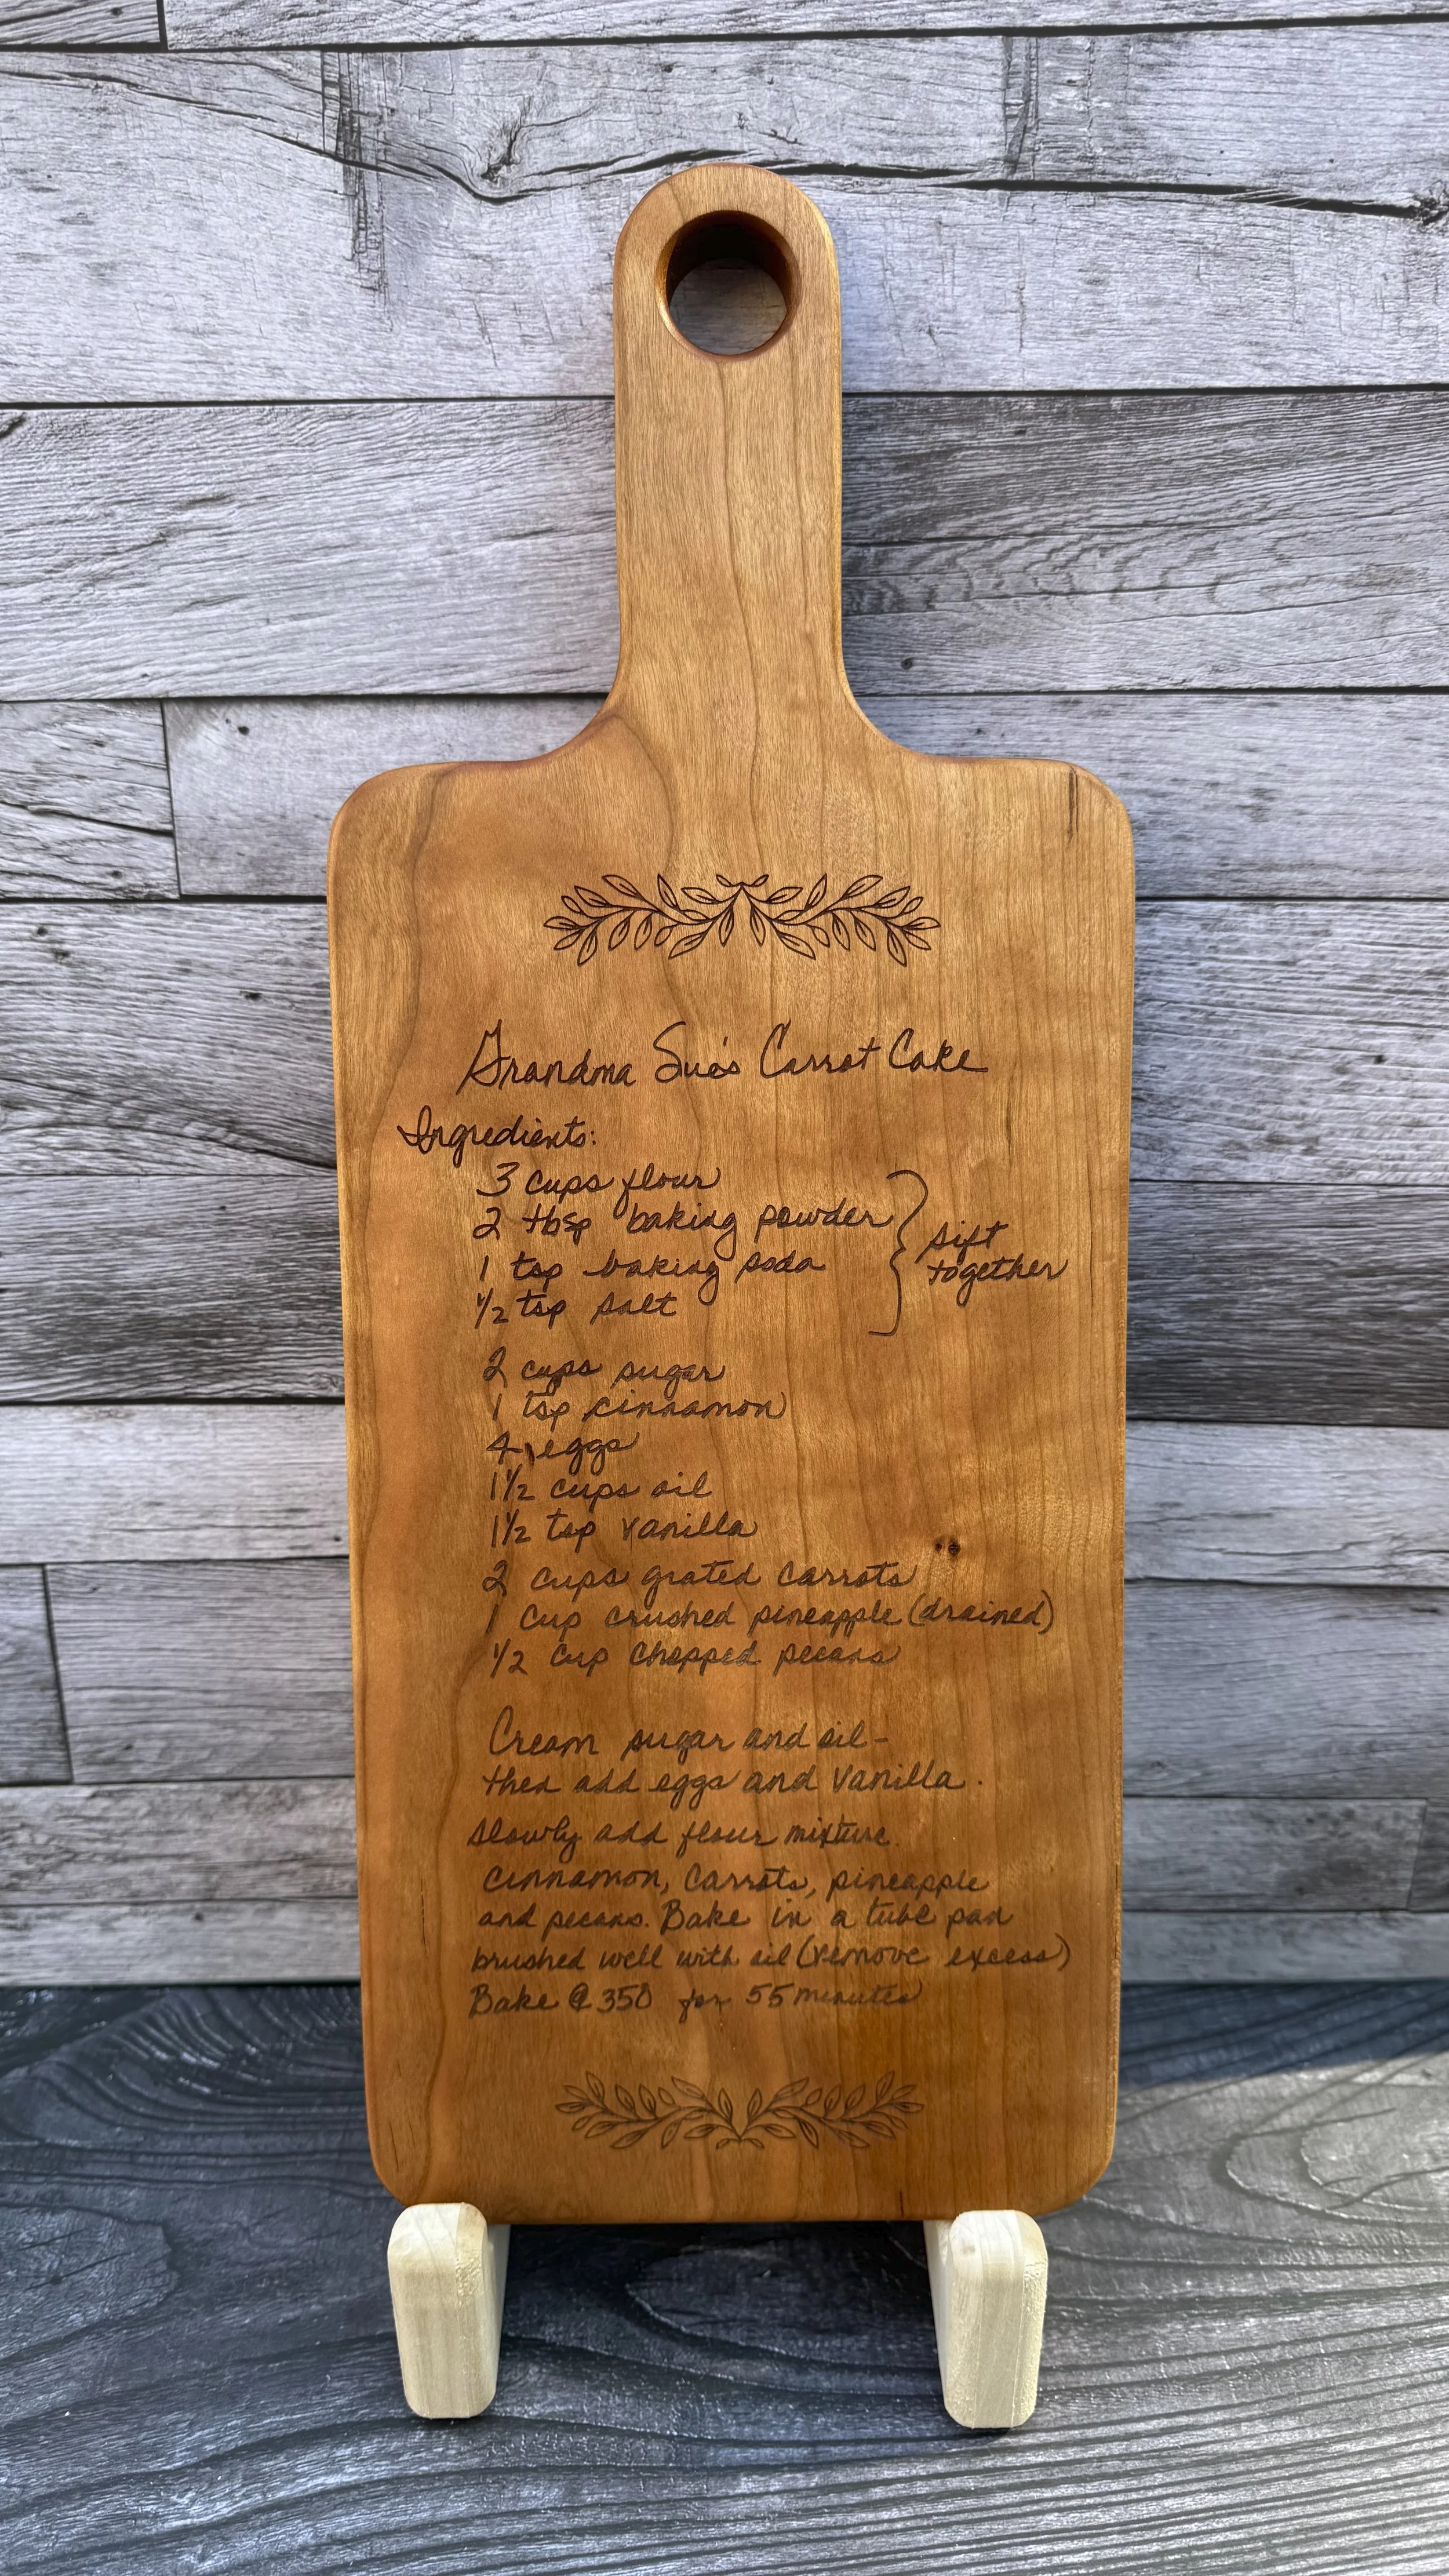 Grandma Sue's Carrot Cake
Ingredients:
3 cups flour
2 tbsp baking powder
1 tsp baking soda
1/2 tsp salt
sift
together
2 cups sugar
1 tsp cinnamon
4 eggs
1 1/2 cups oil
1 1/2 tsp vanilla
2 cups grated carrots
1 cup crushed pineapple (drained)
1/2 cup chopped pecans
Cream sugar and oil -
then add eggs and vanilla.
slowly add flour mixture.
cinnamon, carrots, pineapple
and pecans. Bake in a tube pan
brushed well with oil (remove excess)
Bake @ 350 for 55 minutes